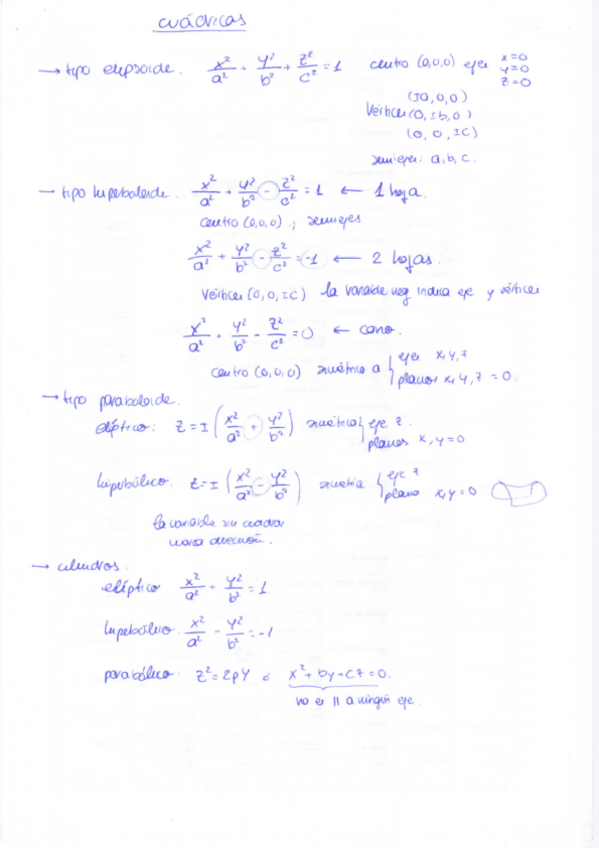 cuádricas
→ tipo elipsoide. x²/a² + y²/b² + z²/c² = 1 centro (0,0,0) ejes x=0
y=0
z=0
(±a,0,0)
Vértices (0,±b,0)
(0,0,±c)
semiejes: a,b,c.
→ tipo hiperboloide. x²/a² + y²/b² - z²/c² = 1 ← 1 hoja.
centro (0,0,0) ; semiejes
x²/a² + y²/b² - z²/c² = -1 ← 2 hojas.
Vértices (0,0,±c) la variable neg indica eje y vértices
x²/a² + y²/b² - z²/c² = 0 ← cono.
centro (0,0,0) simétrico a { ejes x,y,z
planos x,y,z = 0.
→ tipo paraboloide.
elíptico: z = ± (x²/a² + y²/b²) simétrico { eje z.
planos x,y=0
hiperbólico. z = ± (x²/a² - y²/b²) simetría { eje z
plano x,y=0
la variable sin cuadrar
marca dirección.
→ cilindros.
elíptico x²/a² + y²/b² = 1.
hiperbólico. x²/a² - y²/b² = -1
parabólico: z² = 2py ó x² + by + cz = 0.
no es || a ningún eje.